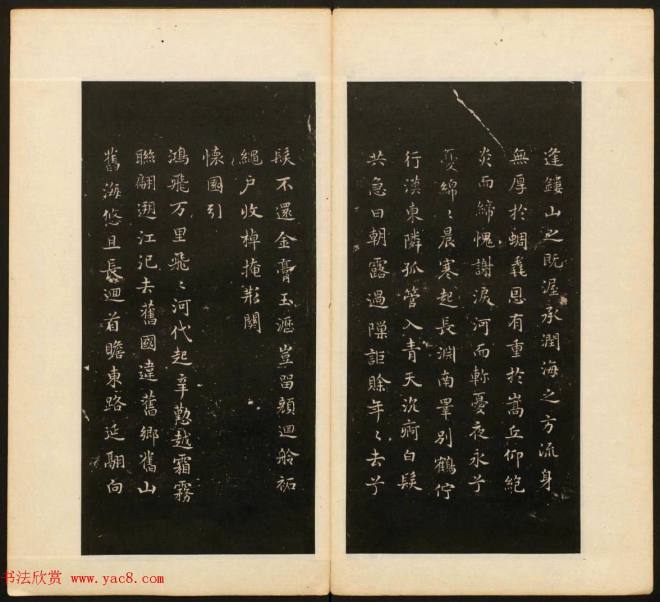 逢鏤山之既渥承潤海之方流身
無厚於蜩毳恩有重於嵩丘仰絕
炎而締愧謝淚河而軫憂夜永兮
憂綿〻晨寒起長淵南睪別鶴佇
行漢東隣孤管入青天沉痾白髮
共急日朝露過隟詎賒年〻去兮
髮不還金膏玉瀝豈留顏迴舲祏
繩户收棹掩荆關
懷園引
鴻飛万里飛〻河代起辛懃越霜霧
聯翩遡江汜去舊國違舊鄉舊山
舊海悠且長迴首瞻東路延翮向
书法欣赏 www.yac8.com